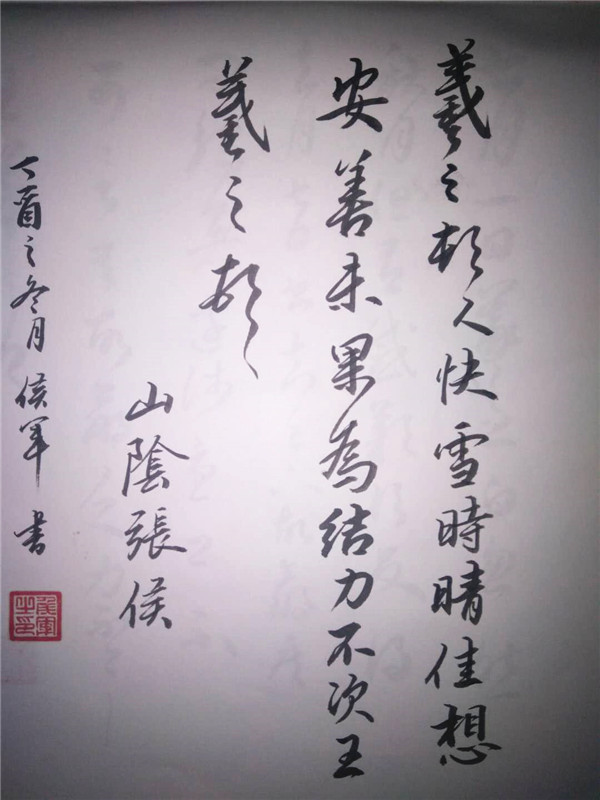 羲之頓首快雪時晴佳想
安善未果為結力不次王
羲之頓首
山陰張侯
丁酉之冬月 侯軍 書
侯軍之印